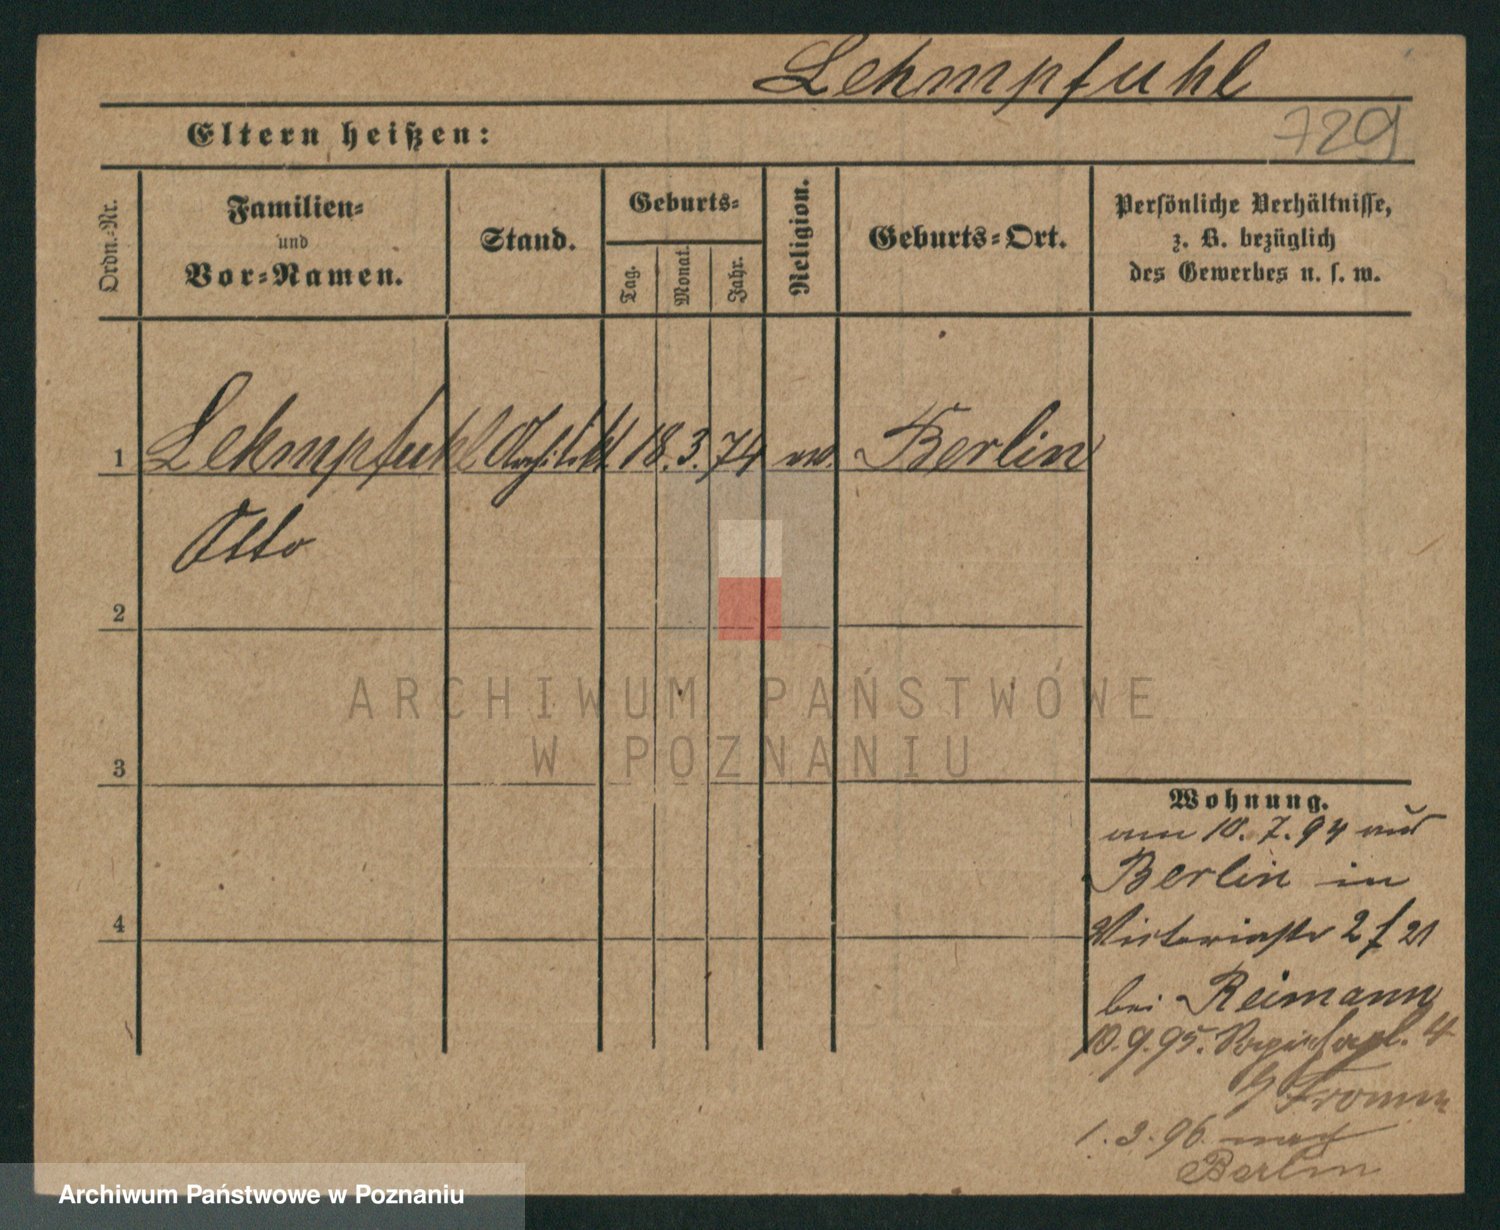 Lehmpfuhl
Eltern heißen:
729
Ordn.-Nr.
Familien-
und
Vor-Namen.
Stand.
Geburts-
Tag.
Monat.
Jahr.
Religion.
Geburts-Ort.
Persönliche Verhältnisse,
z. B. bezüglich
des Gewerbes u. s. w.
1 Lehmpfuhl Architekt 18. 3. 74 ev Berlin
Otto
2
3
4
ARCHIWUM PAŃSTWOWE
W POZNANIU
Wohnung.
am 10. 7. 94 aus
Berlin in
Victoriastr 2 f 21
bei Reimann
10. 9. 95. 4
Fromm
1. 3. 96 nach
Berlin
Archiwum Państwowe w Poznaniu